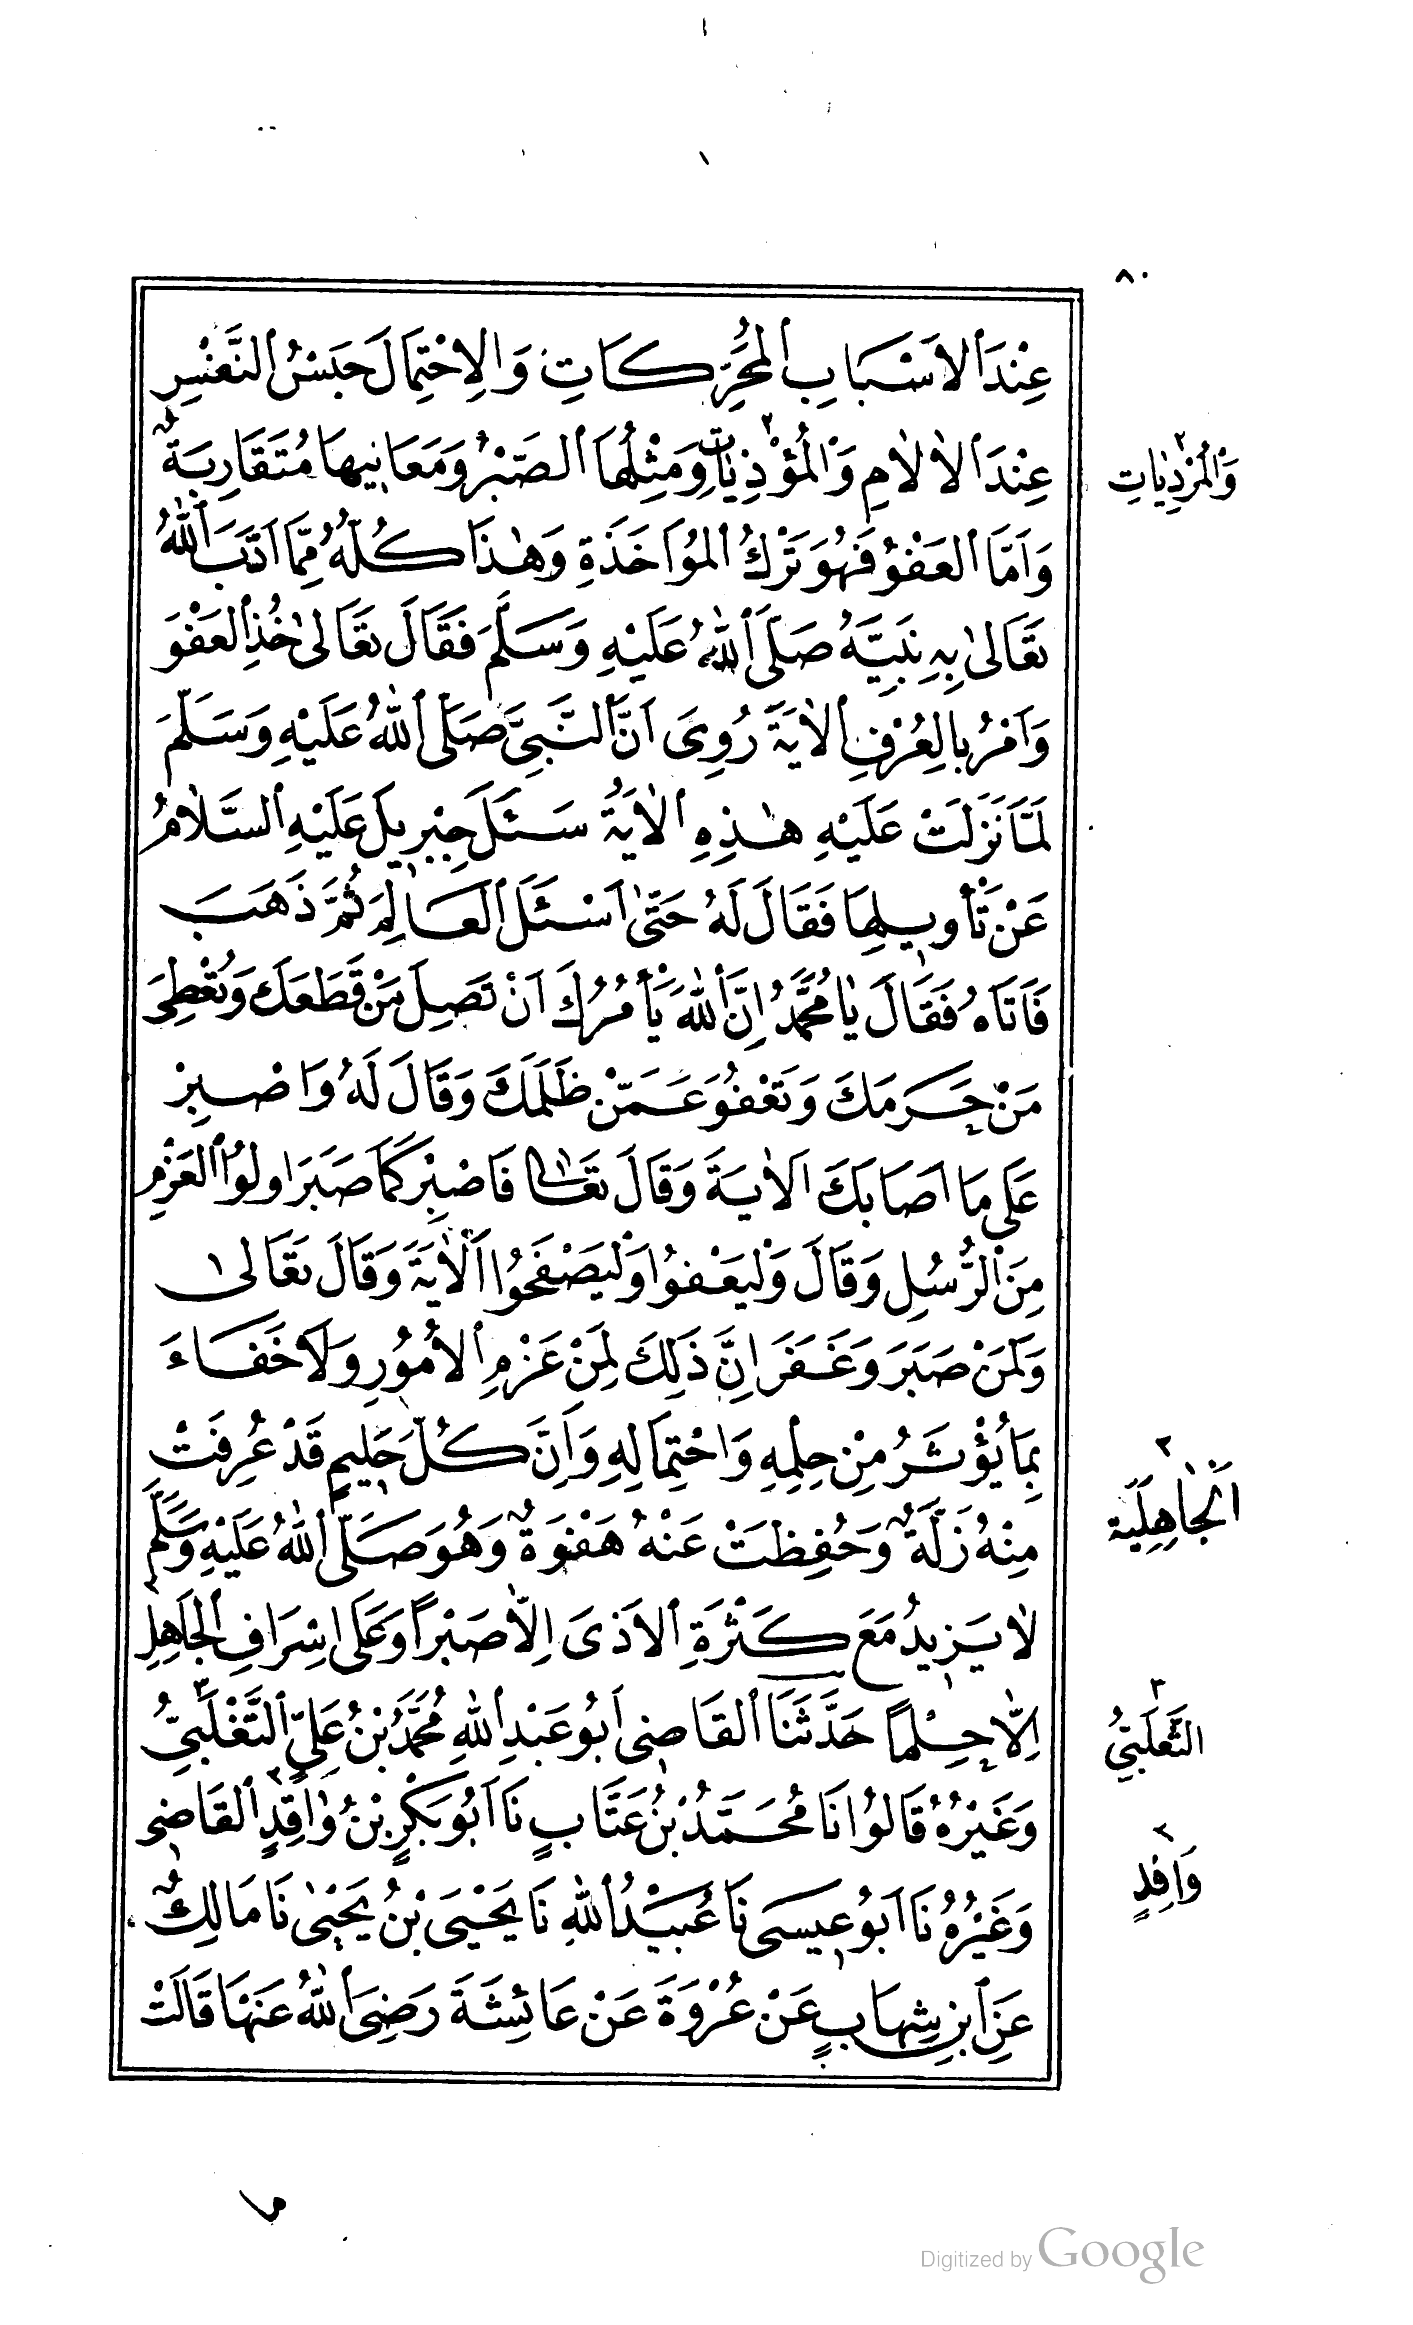 ٨٠
عِنْدَ الْاَسْبَابِ الْمُحَرِّكَاتِ وَالِاحْتِمَالَ حَبْسُ النَّفْسِ
عِنْدَ الْاٰلَامِ وَالْمُؤْذِيَاتِ وَمِثْلُهَا الصَّبْرُ وَمَعَانِيهَا مُتَقَارِبَةٌ
وَالْمُرْذِيَاتِ
وَاَمَّا الْعَفْوُ فَهُوَ تَرْكُ الْمُؤَاخَذَةِ وَهٰذَا كُلُّهُ مِمَّا اَدَّبَ اللّٰهُ
تَعَالىٰ بِهِ نَبِيَّهُ صَلَّى اللّٰهُ عَلَيْهِ وَسَلَّمَ فَقَالَ تَعَالىٰ خُذِ الْعَفْوَ
وَاْمُرْ بِالْعُرْفِ الْاٰيَةَ رُوِىَ اَنَّ النَّبِىَّ صَلَّى اللّٰهُ عَلَيْهِ وَسَلَّمَ
لَمَّا نَزَلَتْ عَلَيْهِ هٰذِهِ الْاٰيَةُ سَئَلَ جِبْرِيلَ عَلَيْهِ السَّلَامُ
عَنْ تَأْوِيلِهَا فَقَالَ لَهُ حَتّٰى اَسْئَلَ الْعَالِمَ ثُمَّ ذَهَبَ
فَاَتَاهُ فَقَالَ يٰا مُحَمَّدُ اِنَّ اللّٰهَ يَأْمُرُكَ اَنْ تَصِلَ مَنْ قَطَعَكَ وَتُعْطِىَ
مَنْ حَرَمَكَ وَتَعْفُوَ عَمَّنْ ظَلَمَكَ وَقَالَ لَهُ وَاصْبِرْ
عَلَى مَا اَصَابَكَ الْاٰيَةَ وَقَالَ تَعَالٰى فَاصْبِرْ كَمَا صَبَرَ اُولُوا الْعَزْمِ
مِنَ الرُّسُلِ وَقَالَ وَلْيَعْفُوا وَلْيَصْفَحُوا الْاٰيَةَ وَقَالَ تَعَالىٰ
وَلَمَنْ صَبَرَ وَغَفَرَ اِنَّ ذَلِكَ لَمِنْ عَزْمِ الْاُمُورِ وَلَا خَفَاءَ
بِمَا يُؤْثَرُ مِنْ حِلْمِهِ وَاحْتِمَالِهِ وَاَنَّ كُلَّ حَلِيمٍ قَدْ عُرِفَتْ
مِنْهُ زَلَّةٌ وَحُفِظَتْ عَنْهُ هَفْوَةٌ وَهُوَ صَلَّى اللّٰهُ عَلَيْهِ وَسَلَّمَ
الْجَاهِلِيَّة
لَا يَزِيدُ مَعَ كَثْرَةِ الْاَذَى اِلَّا صَبْرًا وَعَلَى اِسْرَافِ الْجَاهِلِ
اِلَّا حِلْمًا حَدَّثَنَا الْقَاضِى اَبُو عَبْدِ اللّٰهِ مُحَمَّدُ بْنُ عَلِىٍّ التَّغْلَبِىُّ
الثَّعْلَبِىُّ
وَغَيْرُهُ قَالُوا نَا مُحَمَّدُ بْنُ عَتَّابٍ نَا اَبُو بَكْرِ بْنُ وَاقِدٍ الْقَاضِى
وَافِدٍ
وَغَيْرُهُ نَا اَبُو عِيسَى نَا عُبَيْدُ اللّٰهِ نَا يَحْيَى بْنُ يَحْيٰى نَا مَالِكٌ
عَنِ ابْنِ شِهَابٍ عَنْ عُرْوَةَ عَنْ عَائِشَةَ رَضِىَ اللّٰهُ عَنْهَا قَالَتْ
Digitized by Google